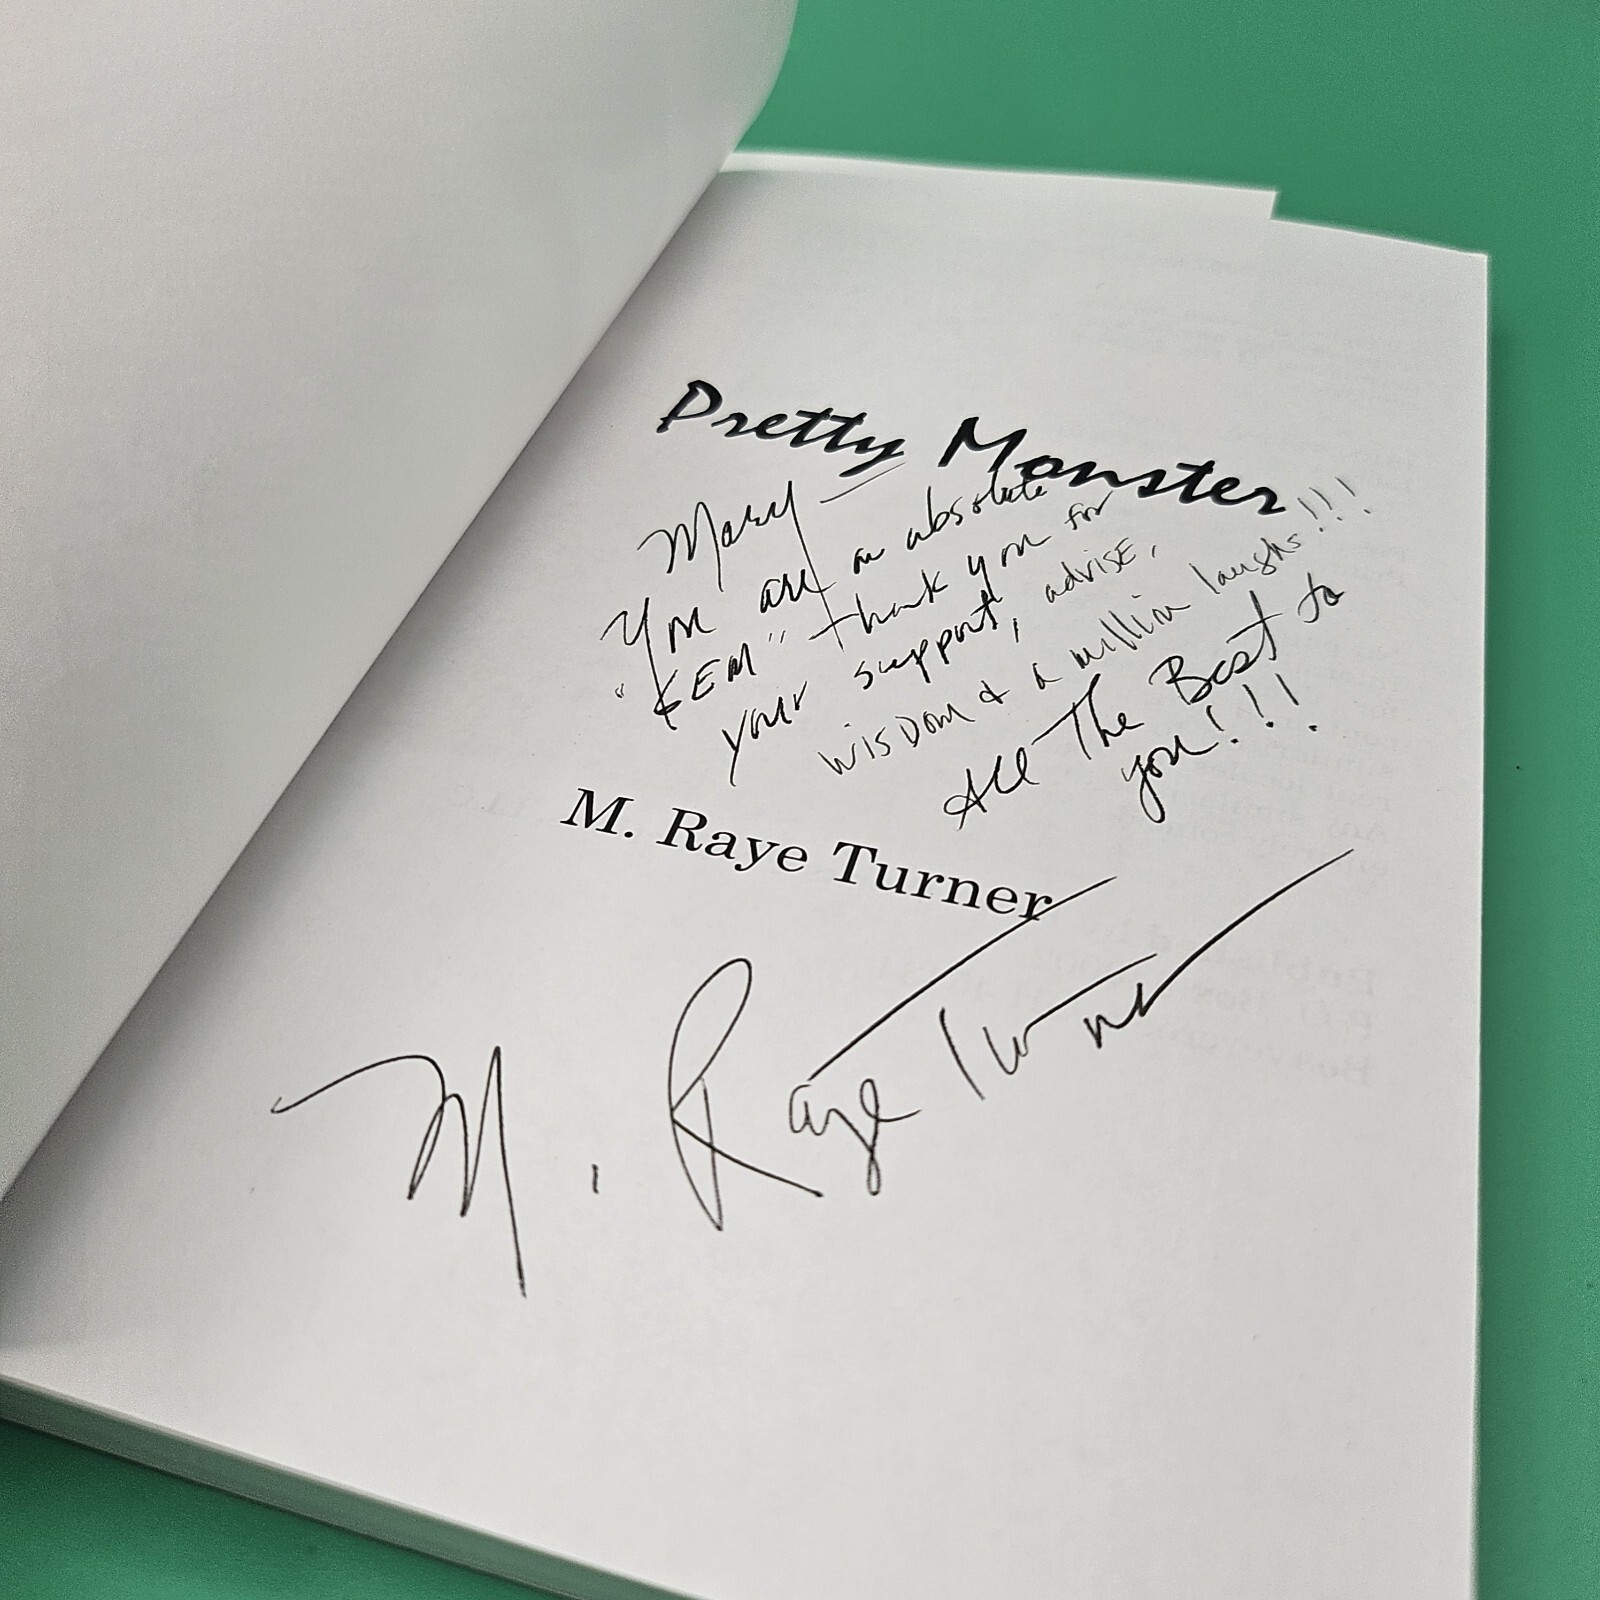 Pretty Monster
Mary —
You are an absolute
"GEM" thank you for
your support, advise,
wisdom & a million laughs!!!
All The Best to
you!!!
M. Raye Turner
M. Raye Turner